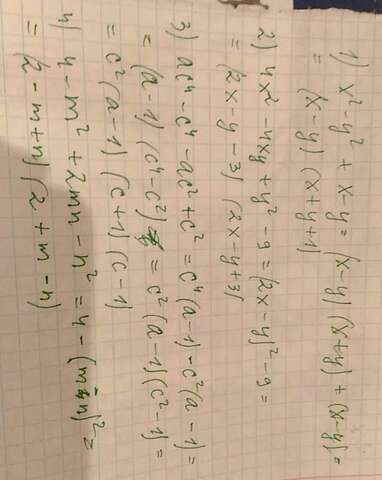 1) x² - y² + x - y = (x - y)(x + y) + (x - y) =
= (x - y)(x + y + 1)
2) 4x² - 4xy + y² - 9 = (2x - y)² - 9 =
= (2x - y - 3)(2x - y + 3)
3) ac⁴ - c⁴ - ac² + c² = c⁴(a - 1) - c²(a - 1) =
= (a - 1)(c⁴ - c²) = c²(a - 1)(c² - 1) =
= c²(a - 1)(c + 1)(c - 1)
4) 4 - m² + 2mn - n² = 4 - (m - n)² =
= (2 - m + n)(2 + m - n)